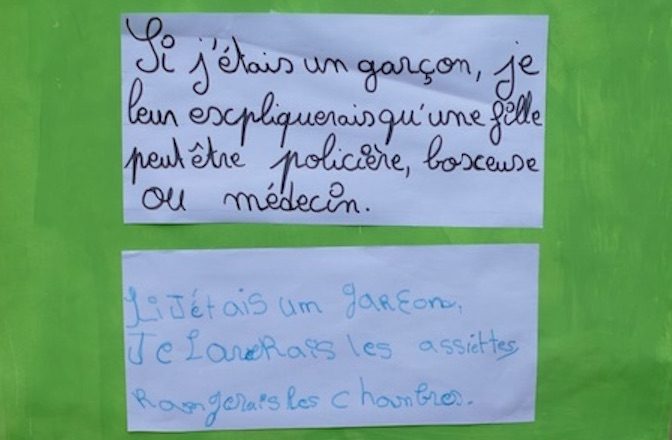 Si j'étais un garçon, je
leur escpliquerais qu'une fille
peut être policière, boxeuse
ou médecin.
Si J'étais um garçon.
Je Laverais les assiettes
Rangerais les chambres.